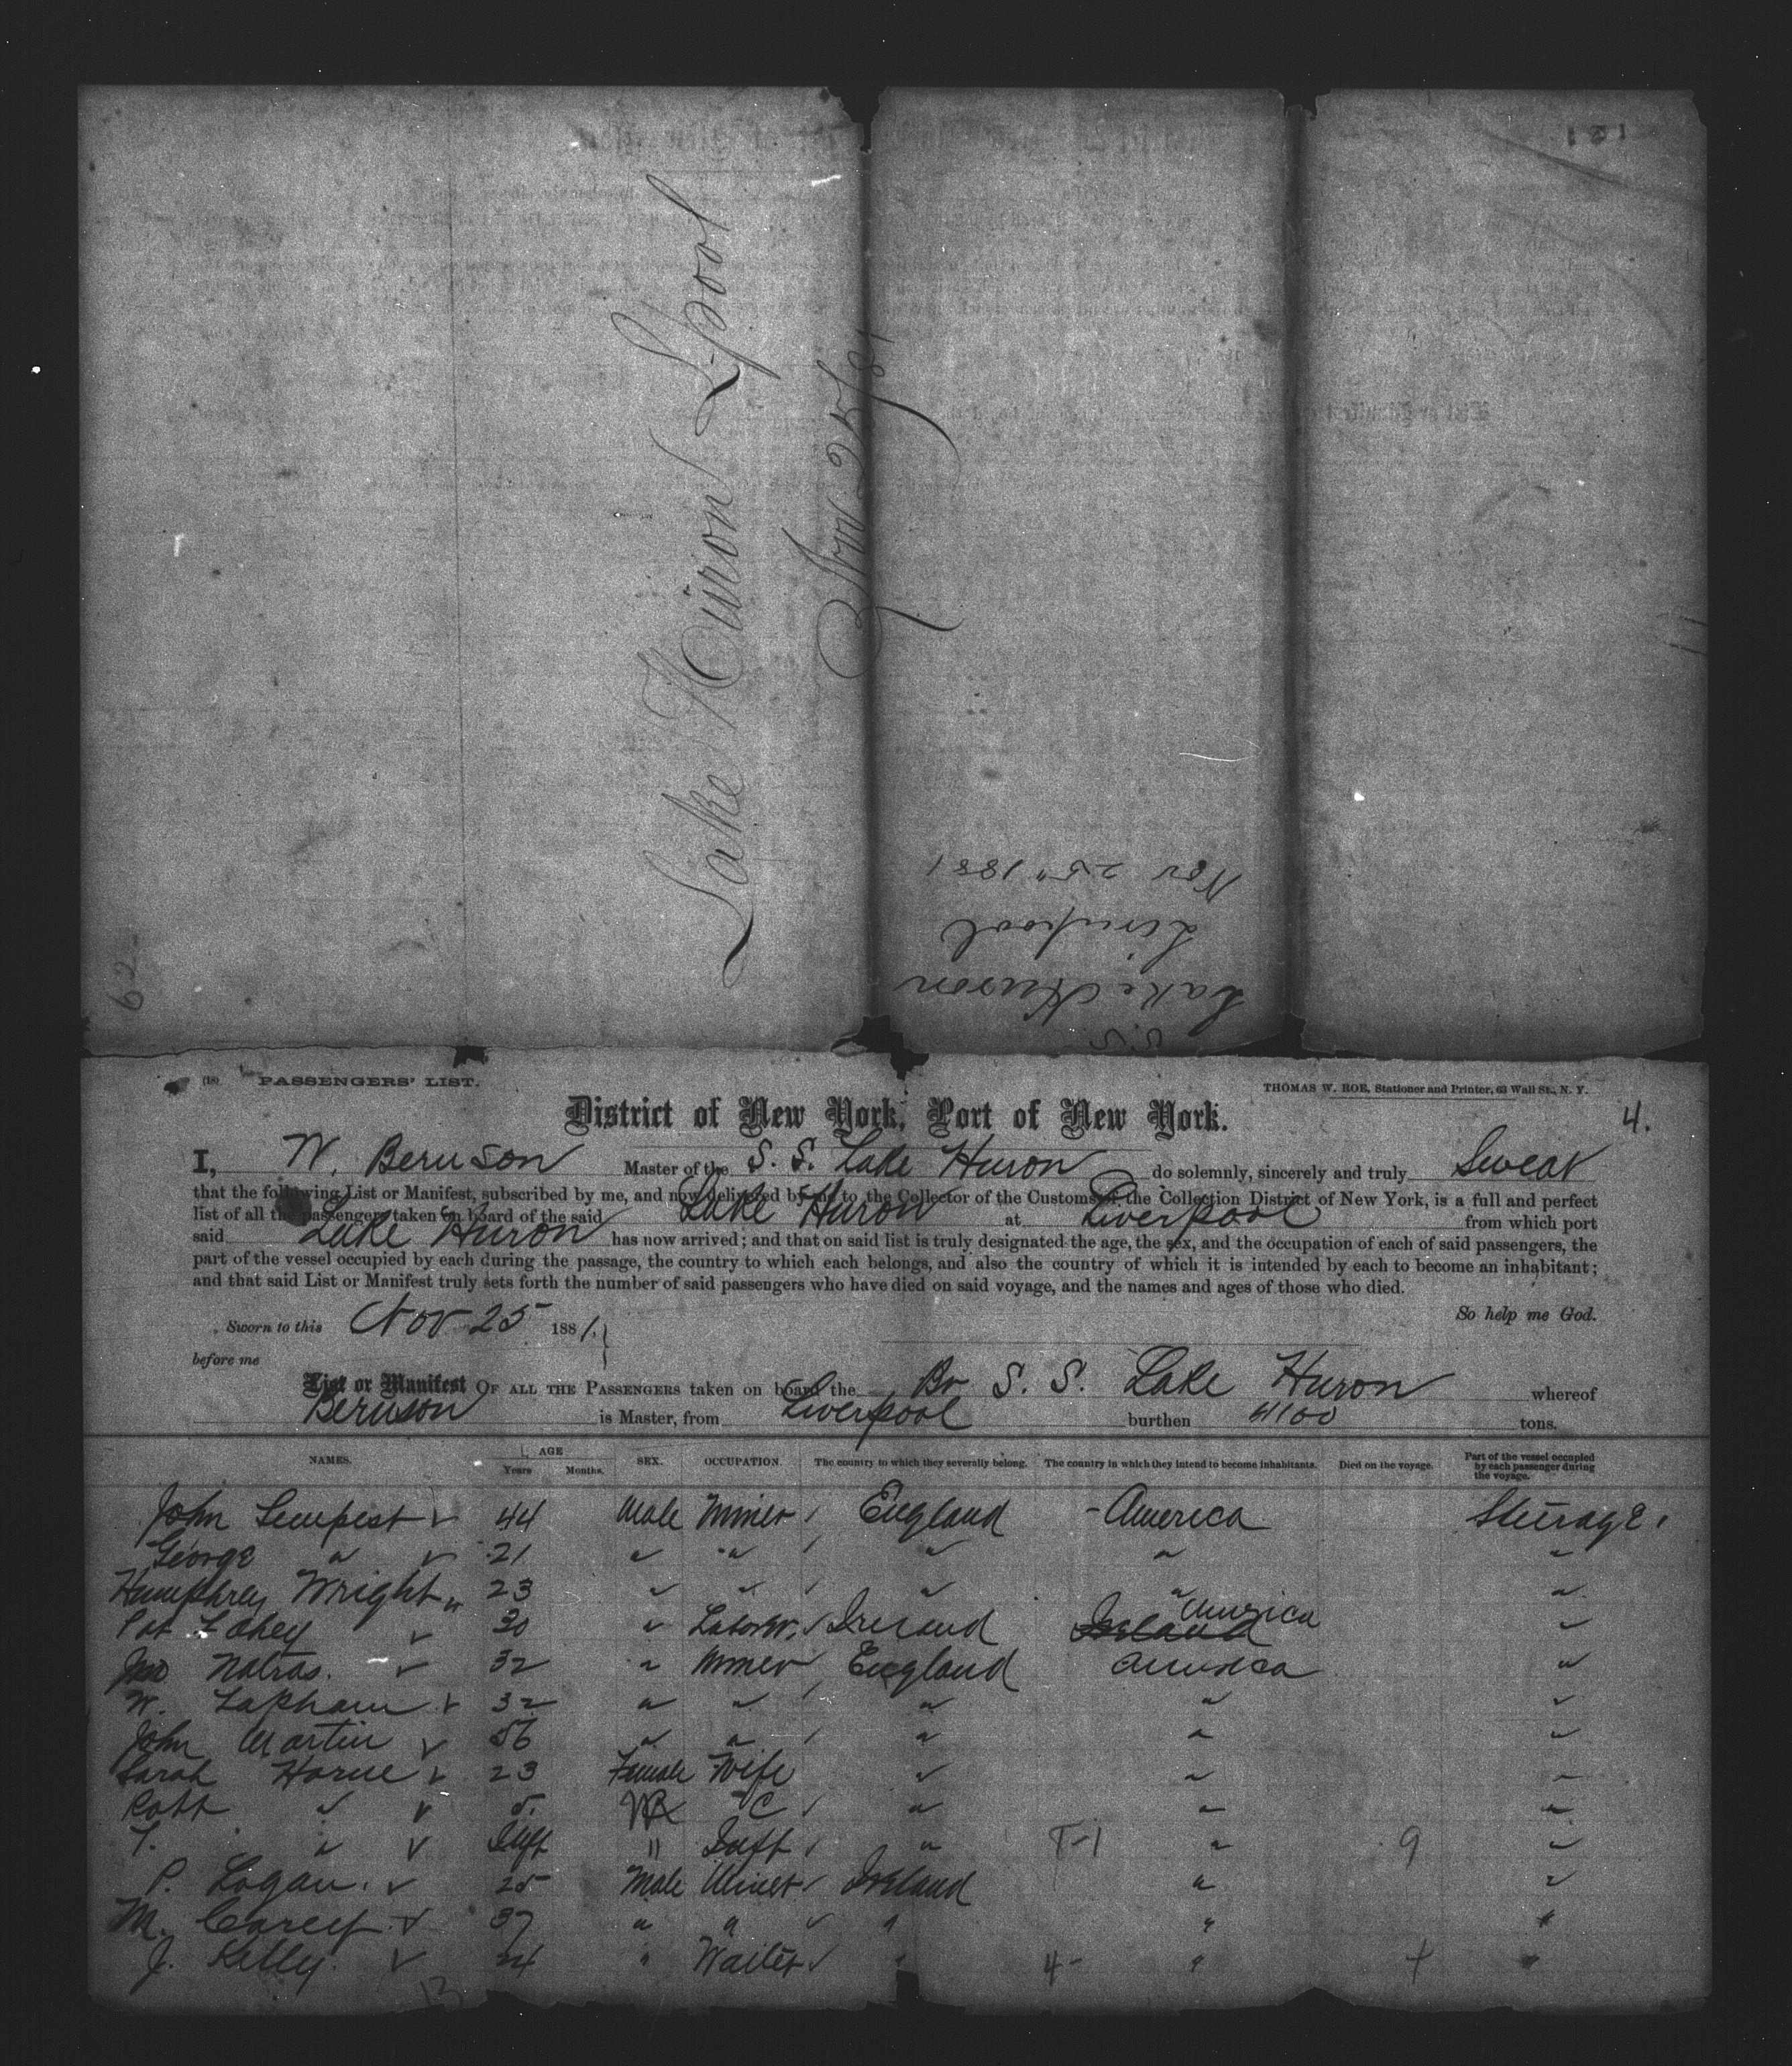 121
Lake Huron L.pool
Nov 25/81
Nov 25" 1881
Liverpool
Lake Huron
S.S.
62
(18) PASSENGERS' LIST.
THOMAS W. ROE, Stationer and Printer, 63 Wall St., N. Y.
District of New York, Port of New York.
4.
I, W. Bernson Master of the S. S. Lake Huron do solemnly, sincerely and truly Swear
that the following List or Manifest, subscribed by me, and now delivered by me to the Collector of the Customs of the Collection District of New York, is a full and perfect
list of all the passengers taken on board of the said Lake Huron at Liverpool from which port
said Lake Huron has now arrived; and that on said list is truly designated the age, the sex, and the occupation of each of said passengers, the
part of the vessel occupied by each during the passage, the country to which each belongs, and also the country of which it is intended by each to become an inhabitant;
and that said List or Manifest truly sets forth the number of said passengers who have died on said voyage, and the names and ages of those who died.
So help me God.
Sworn to this Nov 25 1881.
before me
List or Manifest OF ALL THE PASSENGERS taken on board the Br S. S. Lake Huron whereof
Bernson is Master, from Liverpool burthen 4100 tons.
NAMES. AGE Years Months. SEX. OCCUPATION. The country to which they severally belong. The country in which they intend to become inhabitants. Died on the voyage. Part of the vessel occupied by each passenger during the voyage.
John Tempest 44 Male Miner England - America Steerage
George " 21 " " " " "
Humphrey Wright 23 " " " " "
Pat Fahey 30 " Laborer Ireland Ireland America "
Jno Natras. 32 " Miner England America "
W. Lapham 32 " " " " "
John Martin 56 " " " " "
Sarah Horne 23 Female Wife " " "
Robt " 5. C " " "
T. " Inft " Inft " T-1 " 9 "
P. Logan. 25 Male Miner Ireland " "
M. Carey 37 " " " " "
J. Kelly 24 " Waiter " 4- " + "
13